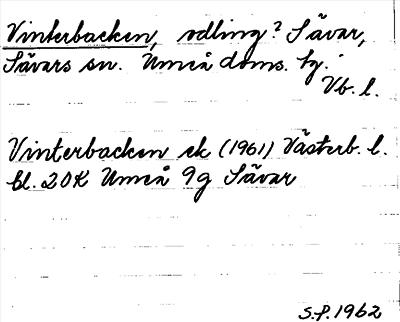 Vinterbacken, odling? Sävar,
Sävars sn. Umeå doms. hg.
Vb. l.
Vinterbacken ek (1961) Västerb. l.
bl. 20K Umeå 9g Sävar
S.P. 1962